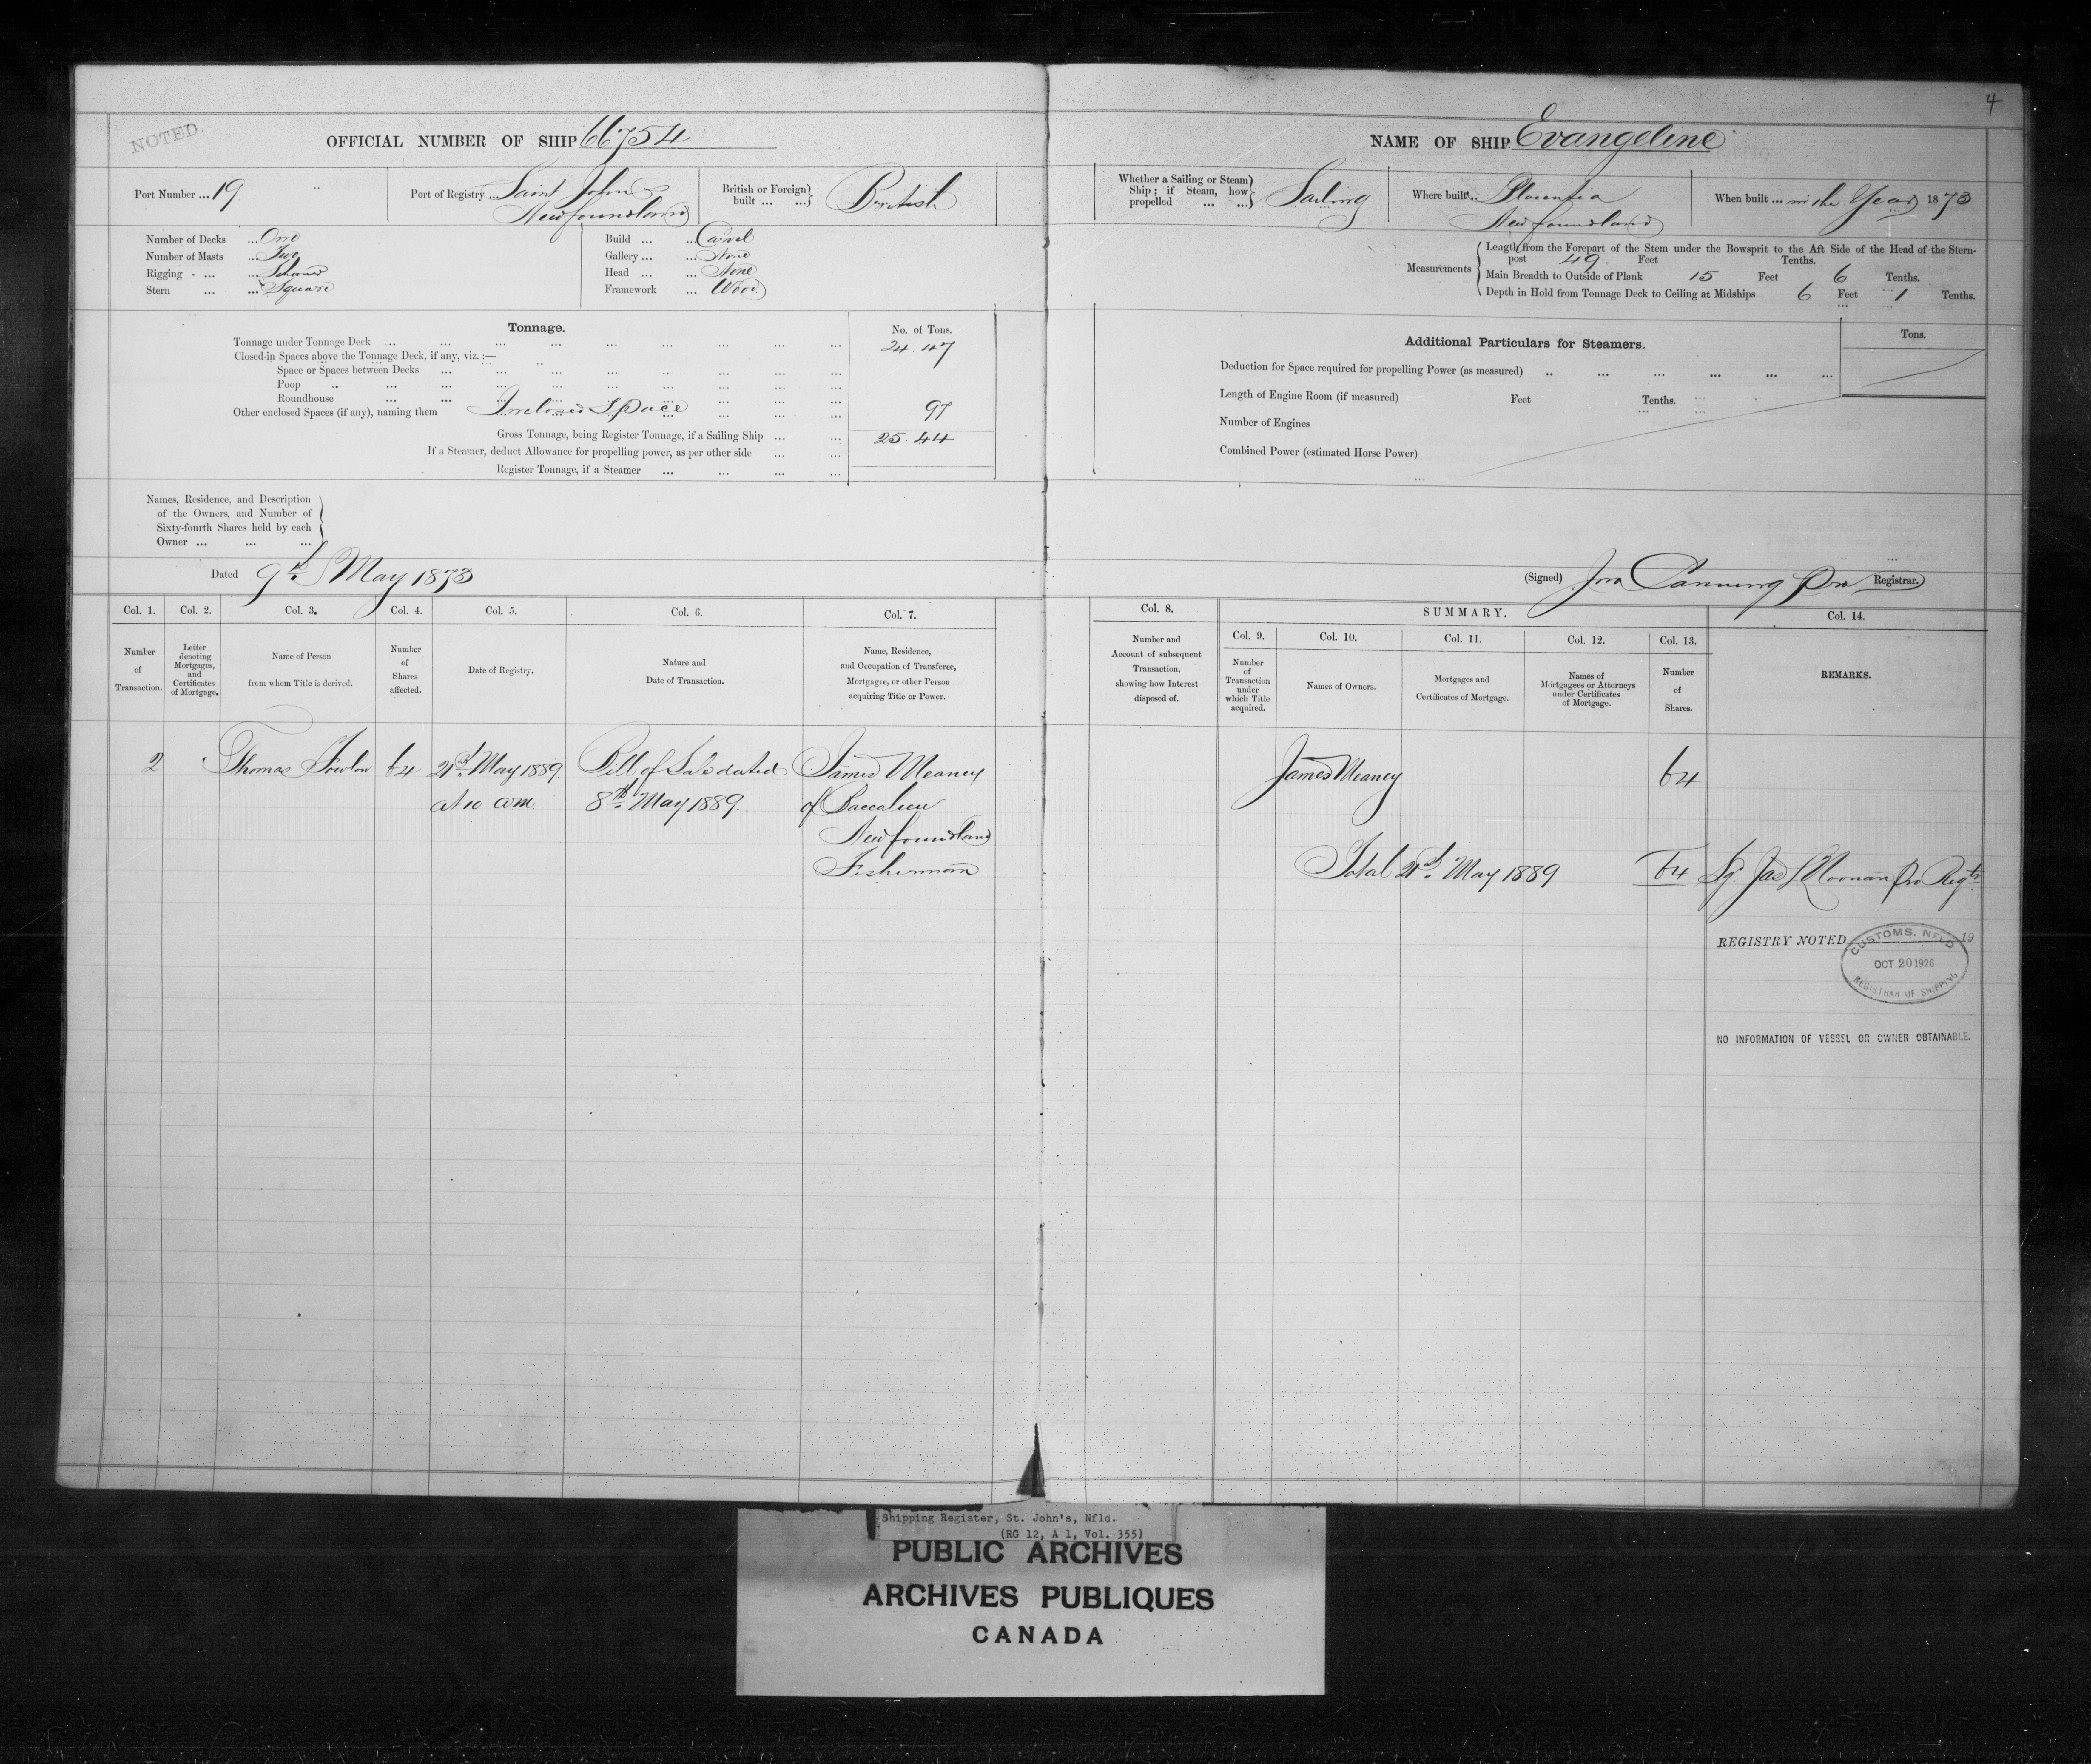 4
NOTED.
OFFICIAL NUMBER OF SHIP 66754
NAME OF SHIP Evangeline
Port Number ... 19
Port of Registry ... Saint Johns
Newfoundland
British or Foreign built ... ... British
Whether a Sailing or Steam Ship; if Steam, how propelled ... ... Sailing
Where built ... Placentia
Newfoundland
When built ... in the Year 1873
Number of Decks ... One
Number of Masts ... Two
Rigging - ... ... Schooner
Stern ... ... Square
Build ... ... Carvel
Gallery ... ... None
Head ... ... None
Framework ... Wood
Measurements
Length from the Forepart of the Stem under the Bowsprit to the Aft Side of the Head of the Stern-
post 49 Feet Tenths.
Main Breadth to Outside of Plank 15 Feet 6 Tenths.
Depth in Hold from Tonnage Deck to Ceiling at Midships 6 Feet 1 Tenths.
Tonnage.
No. of Tons.
Tonnage under Tonnage Deck ... 24.47
Closed-in Spaces above the Tonnage Deck, if any, viz. :—
Space or Spaces between Decks ...
Poop ...
Roundhouse ...
Other enclosed Spaces (if any), naming them Inclosed Space 97
Gross Tonnage, being Register Tonnage, if a Sailing Ship ... 25.44
If a Steamer, deduct Allowance for propelling power, as per other side ...
Register Tonnage, if a Steamer ...
Additional Particulars for Steamers.
Tons.
Deduction for Space required for propelling Power (as measured) ...
Length of Engine Room (if measured) Feet Tenths.
Number of Engines
Combined Power (estimated Horse Power)
Names, Residence, and Description
of the Owners, and Number of
Sixty-fourth Shares held by each
Owner ... ... ...
Dated 9th May 1873
(Signed) Jno Canning Pro Registrar.
Col. 1. Col. 2. Col. 3. Col. 4. Col. 5. Col. 6. Col. 7.
Number of Transaction.
Letter denoting Mortgages, and Certificates of Mortgage.
Name of Person from whom Title is derived.
Number of Shares affected.
Date of Registry.
Nature and Date of Transaction.
Name, Residence, and Occupation of Transferee, Mortgagee, or other Person acquiring Title or Power.
Col. 8.
Number and Account of subsequent Transaction, showing how Interest disposed of.
SUMMARY.
Col. 9. Col. 10. Col. 11. Col. 12. Col. 13. Col. 14.
Number of Transaction under which Title acquired.
Names of Owners.
Mortgages and Certificates of Mortgage.
Names of Mortgagees or Attorneys under Certificates of Mortgage.
Number of Shares.
REMARKS.
2 Thomas Fowlow 64 21st May 1889 Bill of Sale dated James Meaney
at 10 am. 8th May 1889. of Baccalieu
Newfoundland
Fisherman
James Meaney 64
Total 21st May 1889 64 Sg. Jas L Noonan Pro Regtr
REGISTRY NOTED 19
CUSTOMS, NFLD
OCT 20 1926
REGISTRAR OF SHIPPING
NO INFORMATION OF VESSEL OR OWNER OBTAINABLE.
Shipping Register, St. John's, Nfld.
(RG 12, A 1, Vol. 355)
PUBLIC ARCHIVES
ARCHIVES PUBLIQUES
CANADA